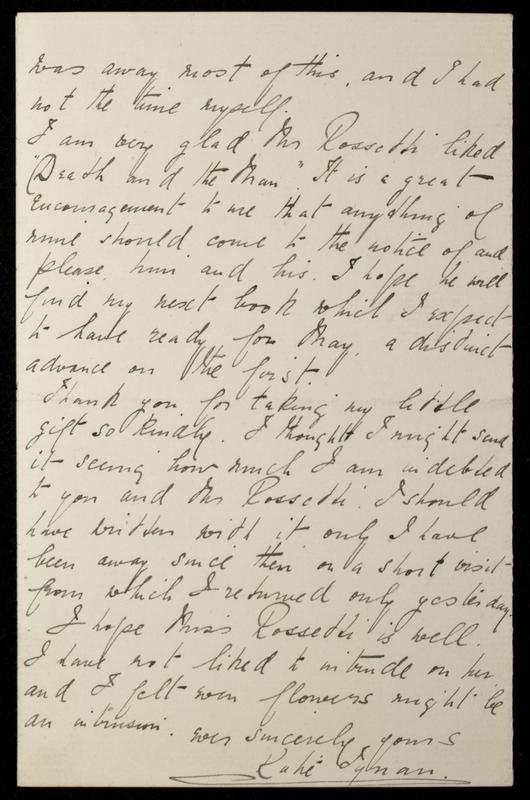 was away most of this, and I had
not the time myself.
I am very glad Mr Rossetti liked
"Death and the Man". It is a great
Encouragement to me that anything of
mine should come to the notice of and
please him and his. I hope he will
find my next book which I expect
to have ready for May, a distinct
advance on the first.
Thank you for taking my little
gift so kindly. I thought I might send
it seeing how much I am indebted
to you and Mr Rossetti. I should
have written with it only I have
been away since then on a short visit
from which I returned only yesterday.
I hope Miss Rossetti is well.
I have not liked to intrude on her
and I felt even flowers might be
an intrusion. very sincerely yours
Kate Tynan.